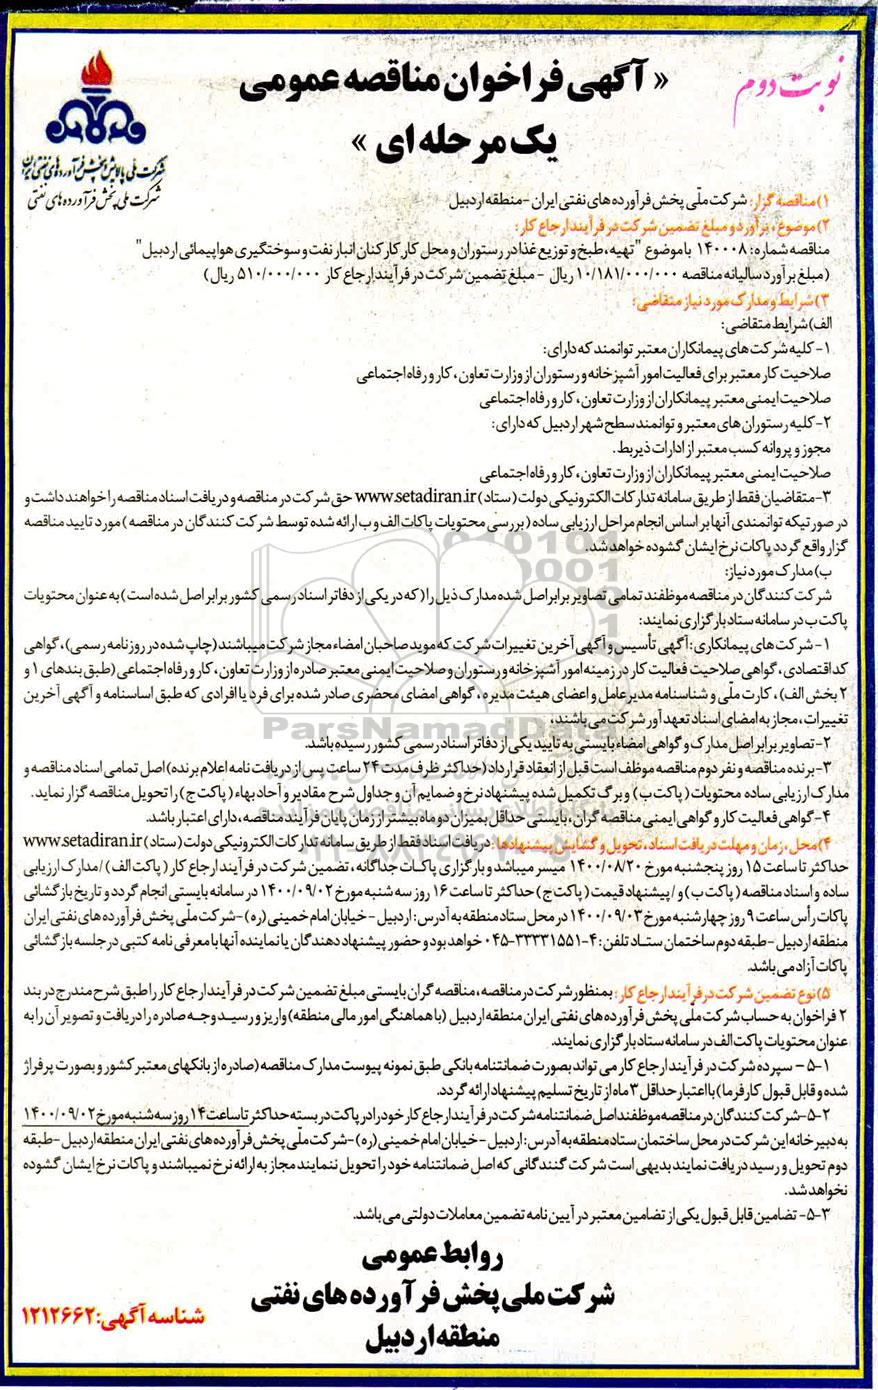 نوبت دوم
« آگهی فراخوان مناقصه عمومی
یک مرحله ای »
شرکت ملی پالایش و پخش فرآورده های نفتی ایران
شرکت ملی پخش فرآورده های نفتی
۱) مناقصه گزار: شرکت ملّی پخش فرآورده های نفتی ایران -منطقه اردبیل
۲) موضوع، برآورد و مبلغ تضمین شرکت در فرآیند ارجاع کار:
مناقصه شماره: ۱۴۰۰۰۸ با موضوع "تهیه، طبخ و توزیع غذا در رستوران و محل کار کارکنان انبار نفت و سوختگیری هواپیمائی اردبیل"
(مبلغ برآورد سالیانه مناقصه ۱۰/۱۸۱/۰۰۰/۰۰۰ ریال - مبلغ تضمین شرکت در فرآیند ارجاع کار ۵۱۰/۰۰۰/۰۰۰ ریال)
۳) شرایط و مدارک مورد نیاز متقاضی:
الف) شرایط متقاضی:
۱- کلیه شرکت های پیمانکاران معتبر توانمند که دارای:
صلاحیت کار معتبر برای فعالیت امور آشپزخانه و رستوران از وزارت تعاون، کار و رفاه اجتماعی
صلاحیت ایمنی معتبر پیمانکاران از وزارت تعاون، کار و رفاه اجتماعی
۲-کلیه رستوران های معتبر و توانمند سطح شهر اردبیل که دارای:
مجوز و پروانه کسب معتبر از ادارات ذیربط.
صلاحیت ایمنی معتبر پیمانکاران از وزارت تعاون، کار و رفاه اجتماعی
۳-متقاضیان فقط از طریق سامانه تدارکات الکترونیکی دولت (ستاد) www.setadiran.ir حق شرکت در مناقصه و دریافت اسناد مناقصه را خواهند داشت و
در صورتیکه توانمندی آنها بر اساس انجام مراحل ارزیابی ساده (بررسی محتویات پاکات الف و ب ارائه شده توسط شرکت کنندگان در مناقصه) مورد تایید مناقصه
گزار واقع گردد پاکات نرخ ایشان گشوده خواهد شد.
ب) مدارک مورد نیاز:
شرکت کنندگان در مناقصه موظفند تمامی تصاویر برابر اصل شده مدارک ذیل را (که در یکی از دفاتر اسناد رسمی کشور برابر اصل شده است) به عنوان محتویات
پاکت ب در سامانه ستاد بارگزاری نمایند:
۱- شرکت های پیمانکاری: آگهی تأسیس و آگهی آخرین تغییرات شرکت که موید صاحبان امضاء مجاز شرکت میباشند (چاپ شده در روزنامه رسمی)، گواهی
کد اقتصادی، گواهی صلاحیت فعالیت کار در زمینه امور آشپزخانه و رستوران و صلاحیت ایمنی معتبر صادره از وزارت تعاون، کار و رفاه اجتماعی (طبق بندهای ۱ و
۲ بخش الف)، کارت ملّی و شناسنامه مدیر عامل و اعضای هیئت مدیره، گواهی امضای محضری صادر شده برای فرد یا افرادی که طبق اساسنامه و آگهی آخرین
تغییرات، مجاز به امضای اسناد تعهد آور شرکت می باشند،
۲-تصاویر برابر اصل مدارک و گواهی امضاء بایستی به تایید یکی از دفاتر اسناد رسمی کشور رسیده باشد.
۳-برنده مناقصه و نفر دوم مناقصه موظف است قبل از انعقاد قرارداد (حداکثر ظرف مدت ۲۴ ساعت پس از دریافت نامه اعلام برنده) اصل تمامی اسناد مناقصه و
مدارک ارزیابی ساده محتویات (پاکت ب) و برگ تکمیل شده پیشنهاد نرخ و ضمایم آن و جداول شرح مقادیر و آحاد بهاء (پاکت ج) را تحویل مناقصه گزار نماید.
۴-گواهی فعالیت کار و گواهی ایمنی مناقصه گران، بایستی حداقل بمیزان دو ماه بیشتر از زمان پایان فرآیند مناقصه، دارای اعتبار باشد.
۴) محل، زمان و مهلت دریافت اسناد، تحویل و گشایش پیشنهادها: دریافت اسناد فقط از طریق سامانه تدارکات الکترونیکی دولت (ستاد) www.setadiran.ir
حداکثر تا ساعت ۱۵ روز پنجشنبه مورخ ۱۴۰۰/۰۸/۲۰ میسر میباشد و بارگزاری پاکات جداگانه، تضمین شرکت در فرآیند ارجاع کار (پاکت الف) / مدارک ارزیابی
ساده و اسناد مناقصه (پاکت ب) و / پیشنهاد قیمت (پاکت ج) حداکثر تا ساعت ۱۶ روز سه شنبه مورخ ۱۴۰۰/۰۹/۰۲ در سامانه بایستی انجام گردد و تاریخ بازگشائی
پاکات رأس ساعت ۹ روز چهارشنبه مورخ ۱۴۰۰/۰۹/۰۳ در محل ستاد منطقه به آدرس: اردبیل - خیابان امام خمینی (ره) -شرکت ملّی پخش فرآورده های نفتی ایران
منطقه اردبیل -طبقه دوم ساختمان ستاد تلفن: ۴-۳۳۳۳۱۵۵۱-۰۴۵ خواهد بود و حضور پیشنهاد دهندگان یا نماینده آنها با معرفی نامه کتبی در جلسه بازگشائی
پاکات آزاد می باشد.
۵) نوع تضمین شرکت در فرآیند ارجاع کار: بمنظور شرکت در مناقصه، مناقصه گران بایستی مبلغ تضمین شرکت در فرآیند ارجاع کار را طبق شرح مندرج در بند
۲ فراخوان به حساب شرکت ملّی پخش فرآورده های نفتی ایران منطقه اردبیل (با هماهنگی امور مالی منطقه) واریز و رسید وجه صادره را دریافت و تصویر آن را به
عنوان محتویات پاکت الف در سامانه ستاد بارگزاری نمایند.
۵-۱ - سپرده شرکت در فرآیند ارجاع کار می تواند بصورت ضمانتنامه بانکی طبق نمونه پیوست مدارک مناقصه (صادره از بانکهای معتبر کشور و بصورت پرفراژ
شده و قابل قبول کارفرما) با اعتبار حداقل ۳ ماه از تاریخ تسلیم پیشنهاد ارائه گردد.
۵-۲-شرکت کنندگان در مناقصه موظفند اصل ضمانتنامه شرکت در فرآیند ارجاع کار خود را در پاکت در بسته حداکثر تا ساعت ۱۴ روز سه شنبه مورخ ۱۴۰۰/۰۹/۰۲
به دبیرخانه این شرکت در محل ساختمان ستاد منطقه به آدرس: اردبیل - خیابان امام خمینی (ره) -شرکت ملّی پخش فرآورده های نفتی ایران منطقه اردبیل -طبقه
دوم تحویل و رسید دریافت نمایند بدیهی است شرکت گنندگانی که اصل ضمانتنامه خود را تحویل ننمایند مجاز به ارائه نرخ نمیباشند و پاکات نرخ ایشان گشوده
نخواهد شد.
۵-۳- تضامین قابل قبول یکی از تضامین معتبر در آیین نامه تضمین معاملات دولتی می باشد.
روابط عمومی
شرکت ملی پخش فرآورده های نفتی
منطقه اردبیل
شناسه آگهی: ۱۲۱۲۶۶۲
ParsNamadData